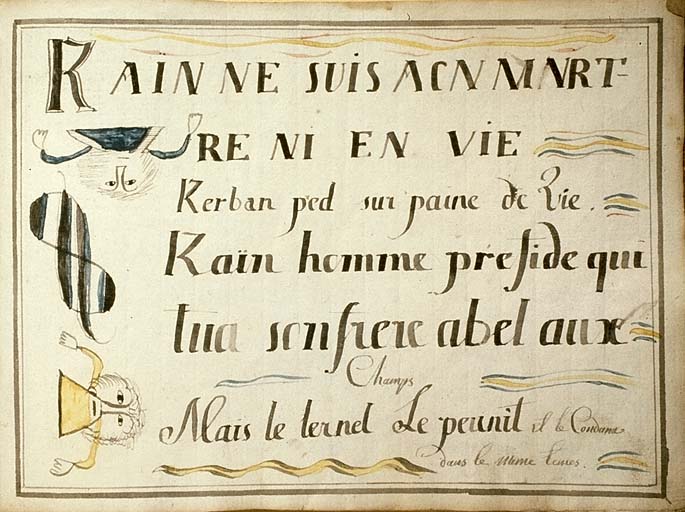 KAIN NE SUIS A CN MNRT-
RE NI EN VIE
Kerban p'ed sur paine de Vie.
Kaïn homme preside qui
tua son frere abel aux
Champs
Mais le ternel Le peunit il le Condana
dans le meme